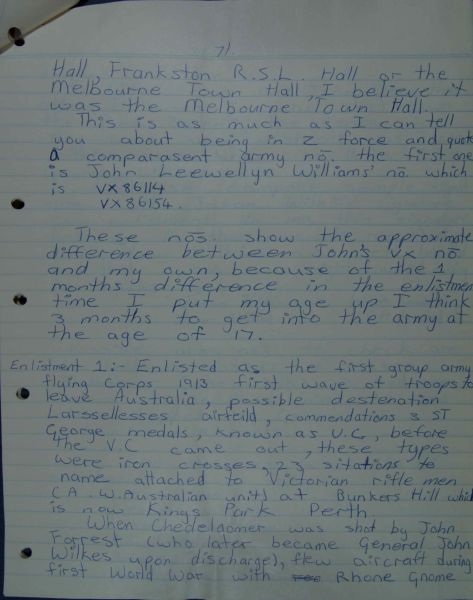 71.
Hall, Frankston R.S.L. Hall or the
Melbourne Town Hall, I believe it
was the Melbourne Town Hall.
This is as much as I can tell
you about being in Z force and quote
a comparasent army nō. the first one
is John Leewellyn Williams' nō. which
is VX 86114
VX 86154.
These nōs. show the approximate
difference between John's Vx nō.
and my own, because of the 1
months difference in the enlistment
time I put my age up I think
3 months to get into the army at
the age of 17.
Enlistment 1:- Enlisted as the first group army
flying Corps 1913 first wave of troops to
leave Australia, possible destenation
Larosellesses airfeild, commendations 3 ST
George medals, known as V.G, before
the V.C came out, these types
were iron crosses, 23 sitations to
name attached to Victorian rifle men
(A.W. Australian unit) at Bunkers Hill which
is now Kings Park Perth
When Chedelaomer was shot by John
Forrest (who later became General John
Wilkes upon discharge), flew aircraft during
first World War with Rhone Gnome